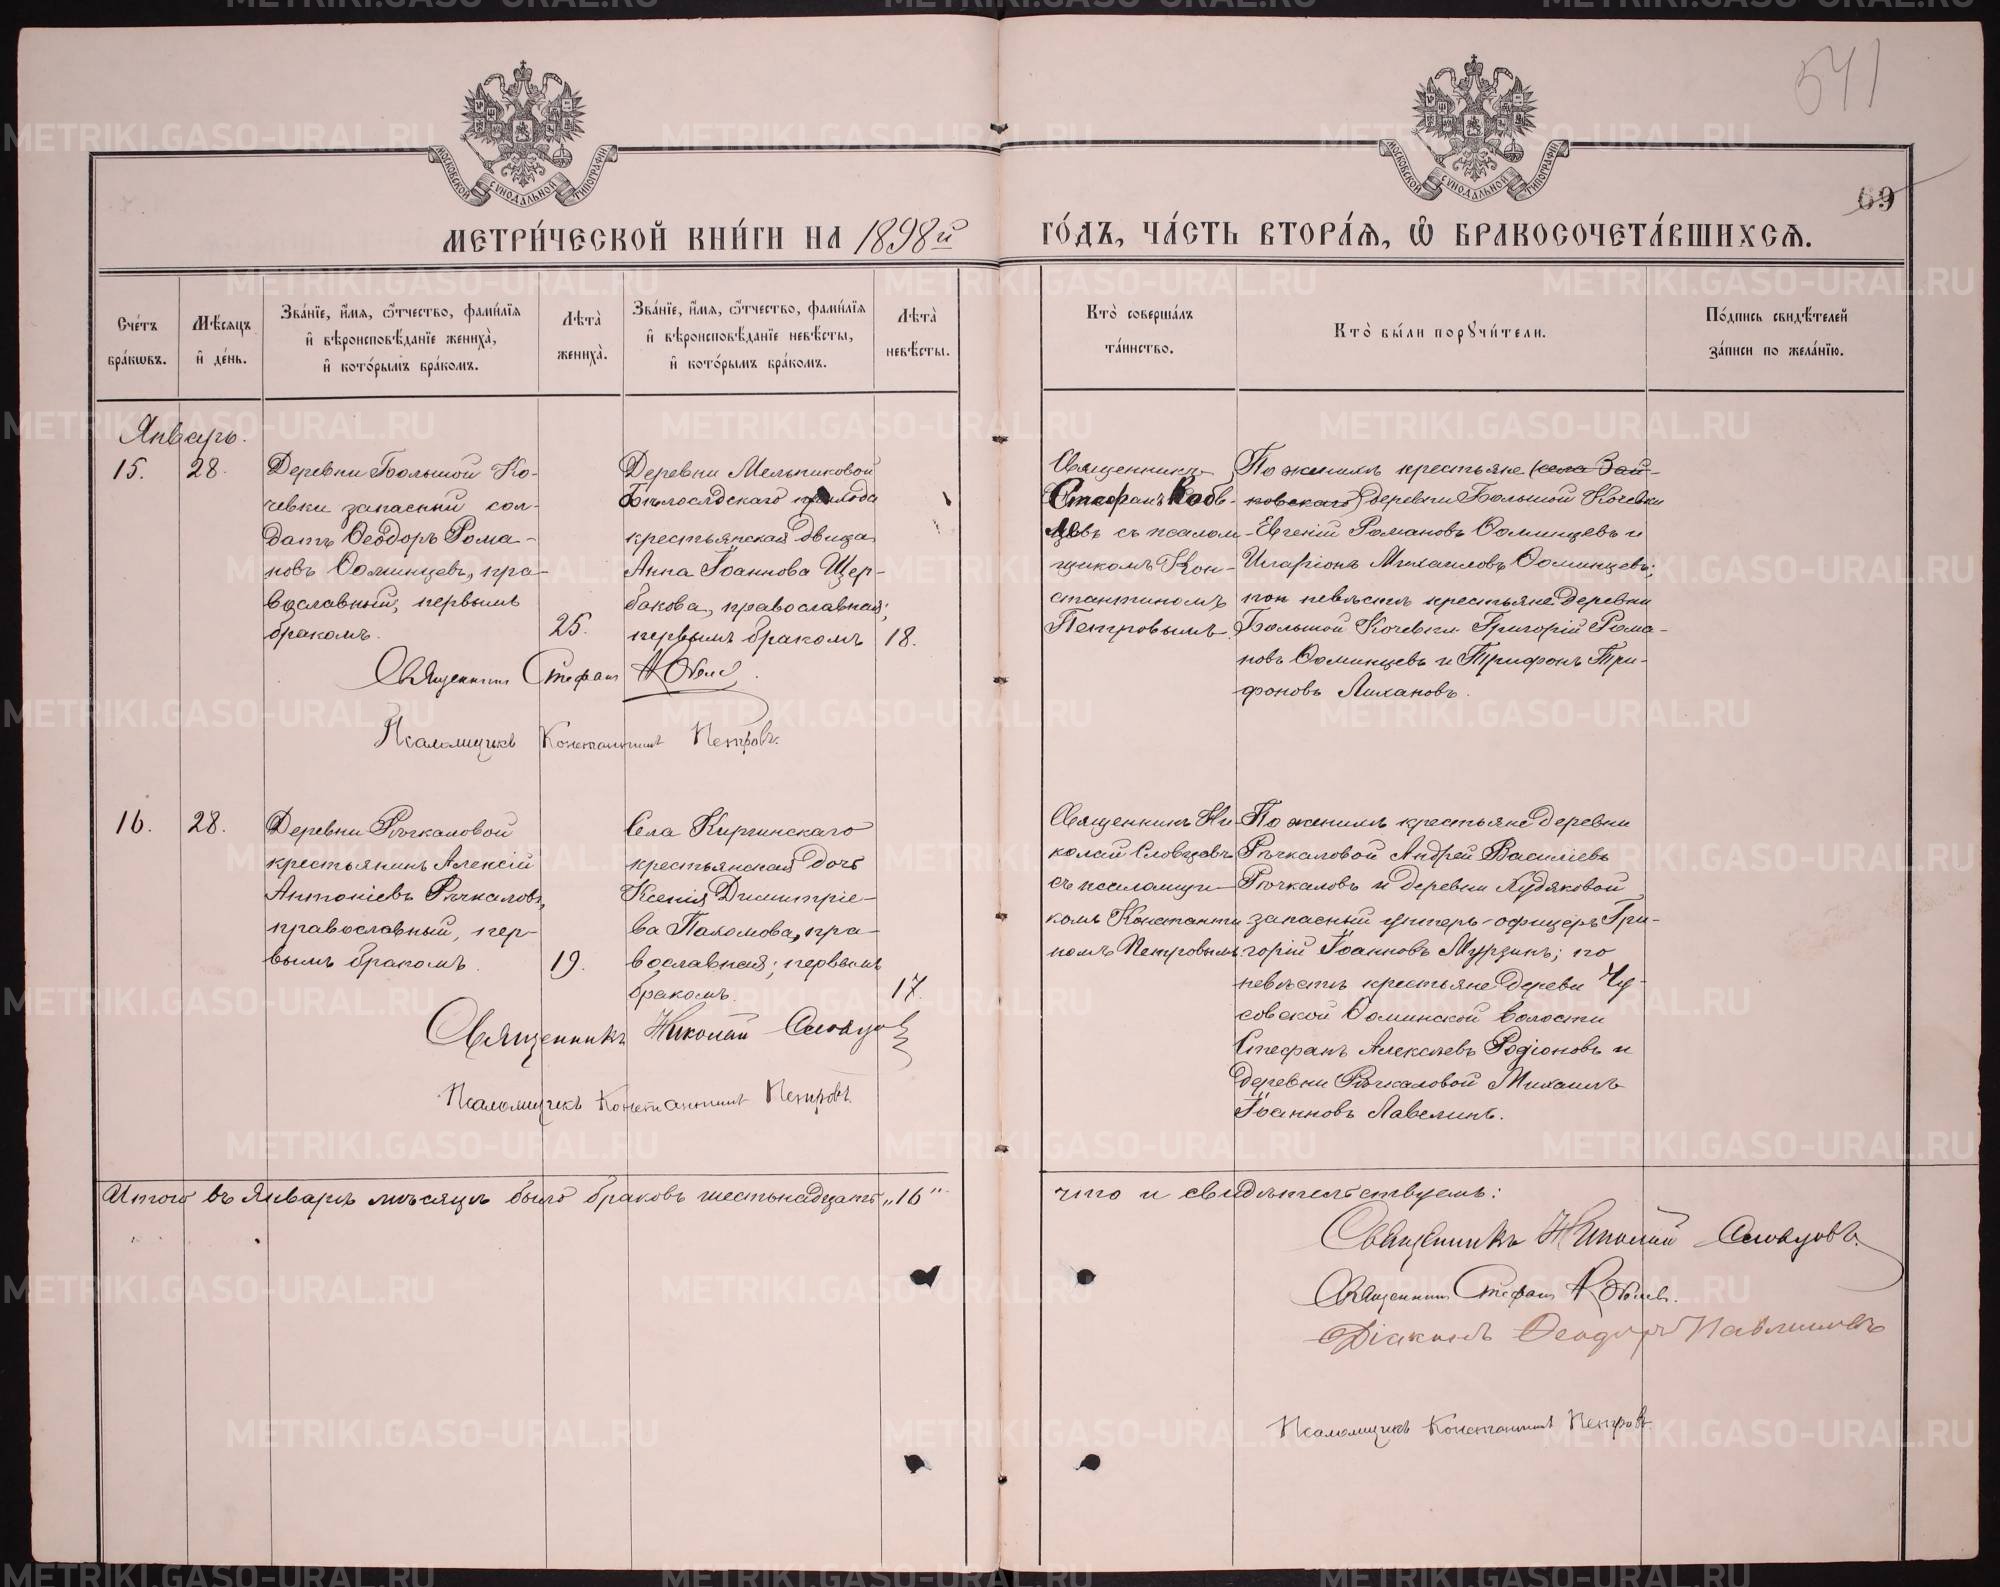 541
69
МОСКОВСКОЙ СѴНОДАЛЬНОЙ ТИПОГРАФІИ
МОСКОВСКОЙ СѴНОДАЛЬНОЙ ТИПОГРАФІИ
МЕТРИ́ЧЕСКОЙ КНИ́ГИ НА 1898й ГО́ДЪ, ЧА́СТЬ ВТОРА́Ѧ, Ѽ БРАКОСОЧЕТА́ВШИХСѦ.
Сче́тъ бра́кѡвъ.
Мѣ́сяцъ и҆ де́нь.
Зва́нїе, и҆́мѧ, ѻ҆́тчество, фами́лїѧ и҆ вѣроисповѣ́данїе жениха̀, и҆ кото́рымъ бра́комъ.
Лѣ̑та̀ жениха̀.
Зва́нїе, и҆́мѧ, ѻ҆́тчество, фами́лїѧ и҆ вѣроисповѣ́данїе невѣ́сты, и҆ кото́рымъ бра́комъ.
Лѣ̑та̀ невѣ́сты.
Кто̀ соверша́лъ та́инство.
Кто̀ бы́ли порꙋчи́тели.
По́дпись свидѣ́телей за́писи по жела́нїю.
Январь.
15.
28.
Деревни Большой Ко-
чевки запасный сол-
датъ Ѳеодоръ Рома-
новъ Ѳоминцевъ, пра-
вославный, первымъ
бракомъ.
25.
Деревни Мельниковой
Бѣлослудскаго прихода
крестьянская дѣвица
Анна Іоаннова Щер-
бакова, православная;
первымъ бракомъ
18.
Священникъ
Стефанъ
съ псалом-
щикомъ Кон-
стантиномъ
Петровымъ.
По женихѣ крестьяне (села Зай-
ковскаго) деревни Большой Кочевки
Евгеній Романовъ Ѳоминцевъ и
Иларіонъ Михаиловъ Ѳоминцевъ;
по невѣстѣ крестьяне деревни
Большой Кочевки Григорій Рома-
новъ Ѳоминцевъ и Трифонъ Три-
фоновъ Лихановъ.
Священникъ Стефанъ
Псаломщикъ Константинъ Петровъ.
16.
28.
Деревни Рѣчкаловой
крестьянинъ Алексій
Антоніевъ Рѣчкаловъ,
православный, пер-
вымъ бракомъ.
19.
Села Киргинскаго
крестьянская дочь
Ксенія Димитріе-
ва Пахомова, пра-
вославная; первымъ
бракомъ.
17.
Священникъ Ни-
колай Словцовъ
съ псаломщи-
комъ Константи-
номъ Петровымъ.
По женихѣ крестьяне деревни
Рѣчкаловой Андрей Василіевъ
Рѣчкаловъ и деревни Кудяковой
запасный унтеръ-офицеръ Гри-
горій Іоанновъ Мурзинъ; по
невѣстѣ крестьяне деревни Чу-
совской Ѳоминской волости
Стефанъ Алексѣевъ Родіоновъ и
деревни Рѣчкаловой Михаилъ
Іоанновъ Лавелинъ.
Священникъ Николай Словцовъ
Псаломщикъ Константинъ Петровъ.
Итого въ Январѣ мѣсяцѣ было браковъ шестьнадцать „16“ что и свидѣтельствуемъ:
Священникъ Николай Словцовъ.
Священникъ Стефанъ
Діаконъ Ѳеодоръ
Псаломщикъ Константинъ Петровъ
METRIKI.GASO-URAL.RU